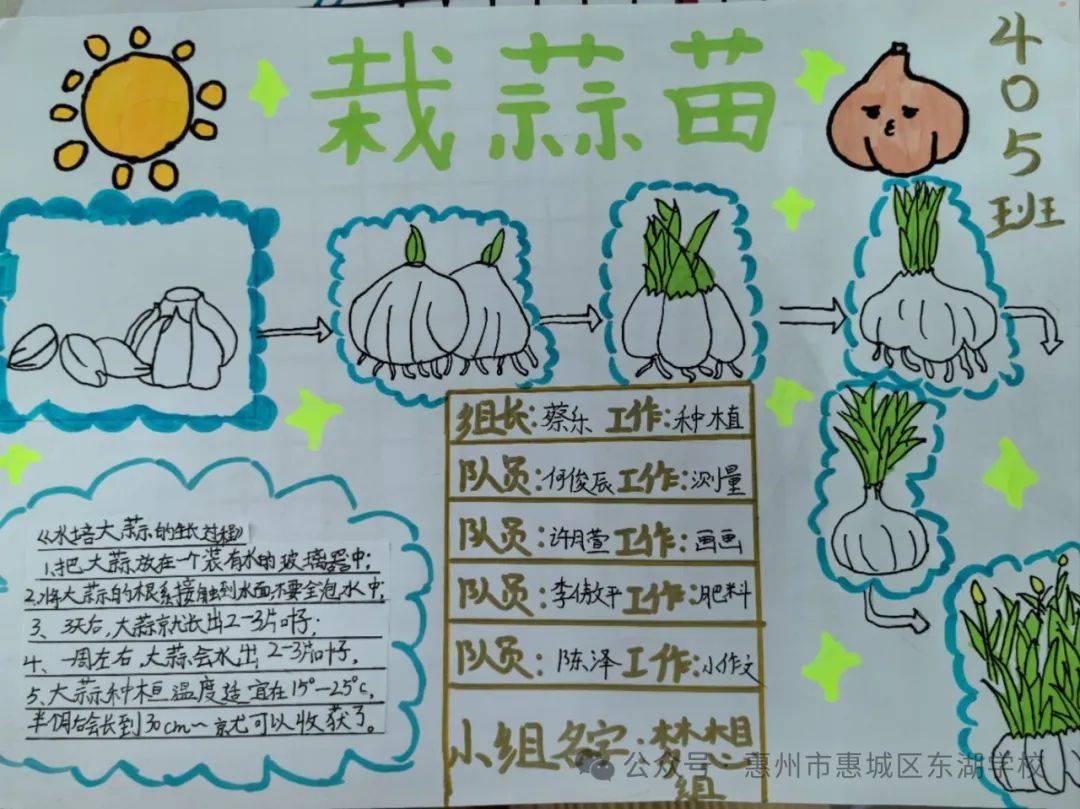 栽蒜苗
405班
组长:蔡乐 工作:种植
队员:何俊辰 工作:测量
队员:许月萱 工作:画画
队员: 工作:肥料
队员:陈泽 工作:小作文
小组名字:梦想组
《水培大蒜的生长过程》
1、把大蒜放在一个装有水的玻璃器中;
2、将大蒜的根系接触到水面,不要全泡水中;
3、3天后,大蒜就长出2-3片叶子;
4、一周左右,大蒜会水出2-3片叶子,
5、大蒜种植温度适宜在15°-25℃,
半个月后会长到30cm~就可以收获了。
公众号·惠州市惠城区东湖学校